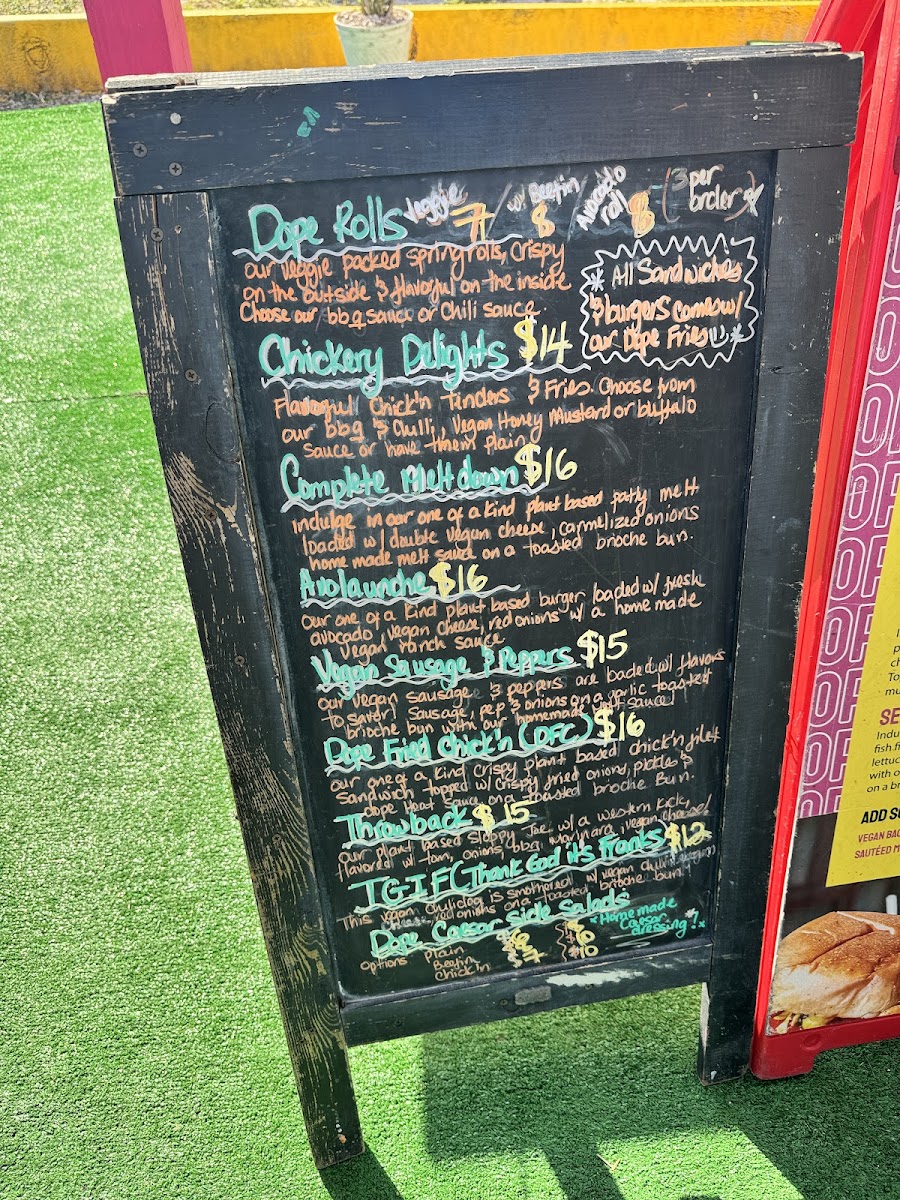 Dope Rolls veggie 7 / w/ Beefin 8 / Avocado roll 8 (3 per order)
our veggie packed springrolls, Crispy
on the outside & flavorful on the inside
Choose our bbq sauce or Chili sauce.
* All Sandwiches
& burgers comes w/
our Dope Fries *
Chickery Delights $14
Flavorful Chick'n Tenders & Fries. Choose from
our bbq & Chilli, Vegan Honey Mustard or buffalo
sauce or have them plain
Complete Meltdown $16
indulge in our one of a kind plant based patty melt
loaded w/ double vegan cheese, carmelized onions
home made melt sauce on a toasted brioche bun.
Avolaunche $16
our one of a kind plant based burger loaded w/ fresh
avocado, vegan cheese, red onions w/ a home made
vegan ranch sauce
Vegan Sausage & Peppers $15
our vegan sausage & peppers are loaded w/ flavors
to saver! Sausage, pep & onions on a garlic toasted
brioche bun with our homemade sauce!
Dope Fried Chick'n (DFC) $16
our one of a kind crispy plant based chick'n filet
Sandwich topped w/ crispy fried onions, pickles &
dope Hoat Sauce on a toasted brioche Bun.
Throwback $15
our plant based sloppy Joe w/ a western kick,
flavored w/ tom, onions, bbq, marinara, vegan cheese!
TGIF (Thank God it's Franks $12
This vegan chilidog is smothered w/ vegan chili,
cheese, red onions on a toasted brioche bun!
Dope Caesar side Salads
*Homemade
Caesar
dressing!*
options Plain
Beefin
Chick'n
$10
SE
Indu
fish fi
lettuc
with o
on a br
ADD SO
VEGAN BAC
SAUTÉED M